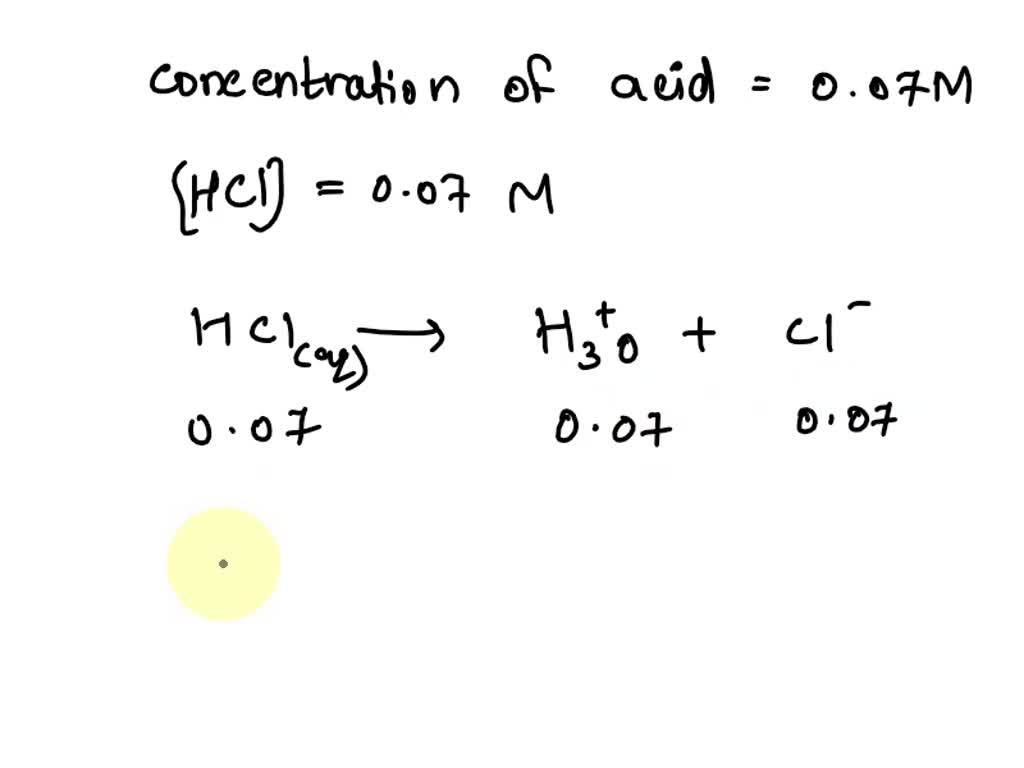 concentration of acid = 0.07M
[HCl] = 0.07 M
HCl(aq) → H3+O + Cl-
0.07 0.07 0.07